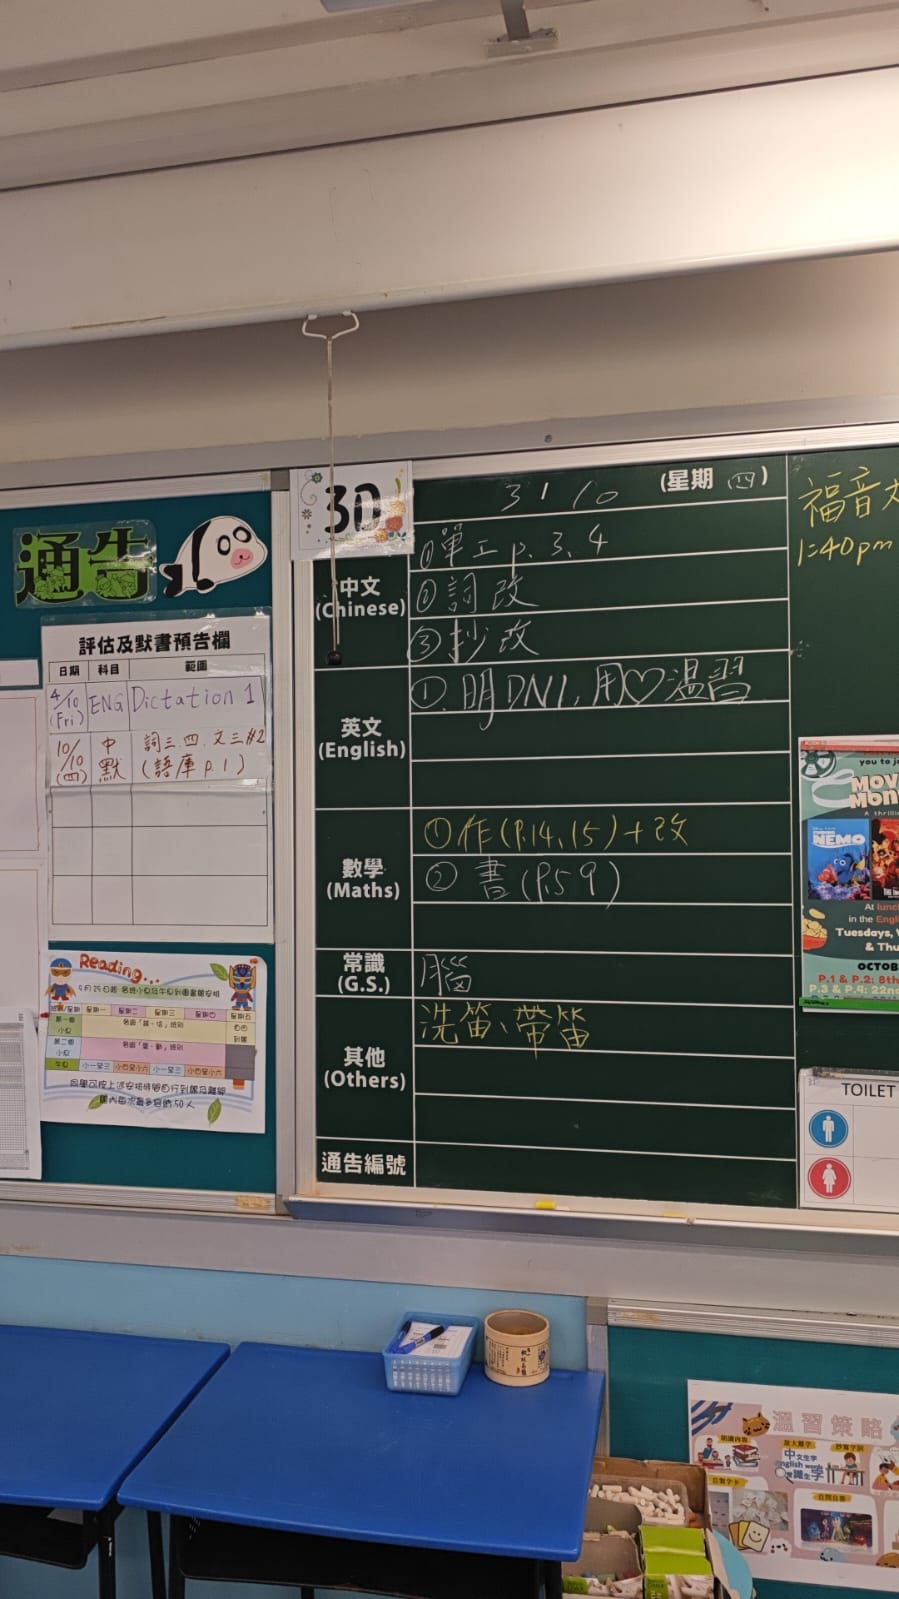 通告
評估及默書預告欄
日期 科目 範圍
4/10 (Fri) ENG Dictation 1
10/10 (四) 中默 詞三、四、文三#2 (語庫 p.1)
Reading...
3D
3 1/10 (星期 四)
中文 (Chinese)
① 單工 p.3、4
② 詞改
③ 抄改
英文 (English)
①. 明DN1, 用♡溫習
數學 (Maths)
① 作(P.14,15)+改
② 書(P.59)
常識 (G.S.)
腦
其他 (Others)
洗笛、帶笛
通告編號
福音
1:40pm
you to
NEMO
At
in the
Tuesdays,
& Thu
OCTOB
P.1 & P.2: 8th
P.3 & P.4: 22nd
TOILET
溫習策略